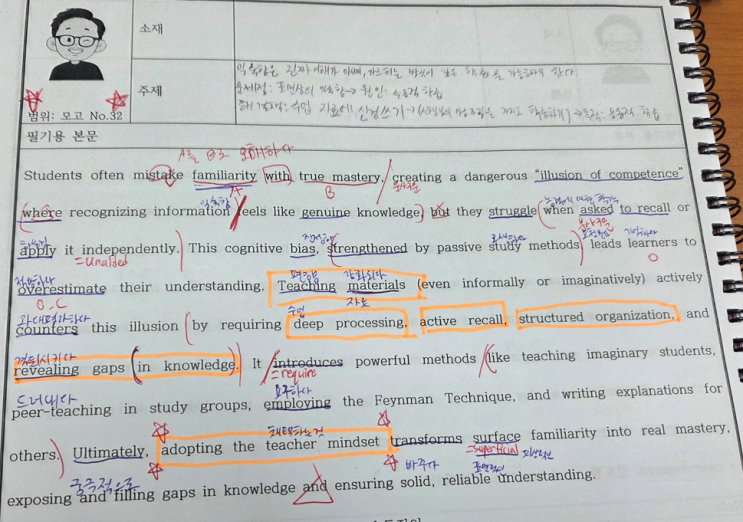 소재
주제
익숙함은 진짜 이해가 아니며, 가르치는 방식이 깊은 학습을 가능하게 한다
문제점: 표면상의 익숙함 → 원인: 수동적 학습
범위: 모고 No.32
필기용 본문
A를 B로 오해하다
Students often mistake familiarity with true mastery, creating a dangerous "illusion of competence"
A
B
익숙함
where recognizing information feels like genuine knowledge, but they struggle when asked to recall or
apply it independently. This cognitive bias, strengthened by passive study methods, leads learners to
=unaided
O
overestimate their understanding. Teaching materials (even informally or imaginatively) actively
O.C
편향
강화되다
과대평가하다
수업
자료
counters this illusion by requiring deep processing, active recall, structured organization, and
revealing gaps in knowledge. It introduces powerful methods like teaching imaginary students,
=require
드러내다
요구하다
peer-teaching in study groups, employing the Feynman Technique, and writing explanations for
채택하는것
others. Ultimately, adopting the teacher mindset transforms surface familiarity into real mastery,
=superficial
피상적인
궁극적으로
바꾸다
표면적인
exposing and filling gaps in knowledge and ensuring solid, reliable understanding.